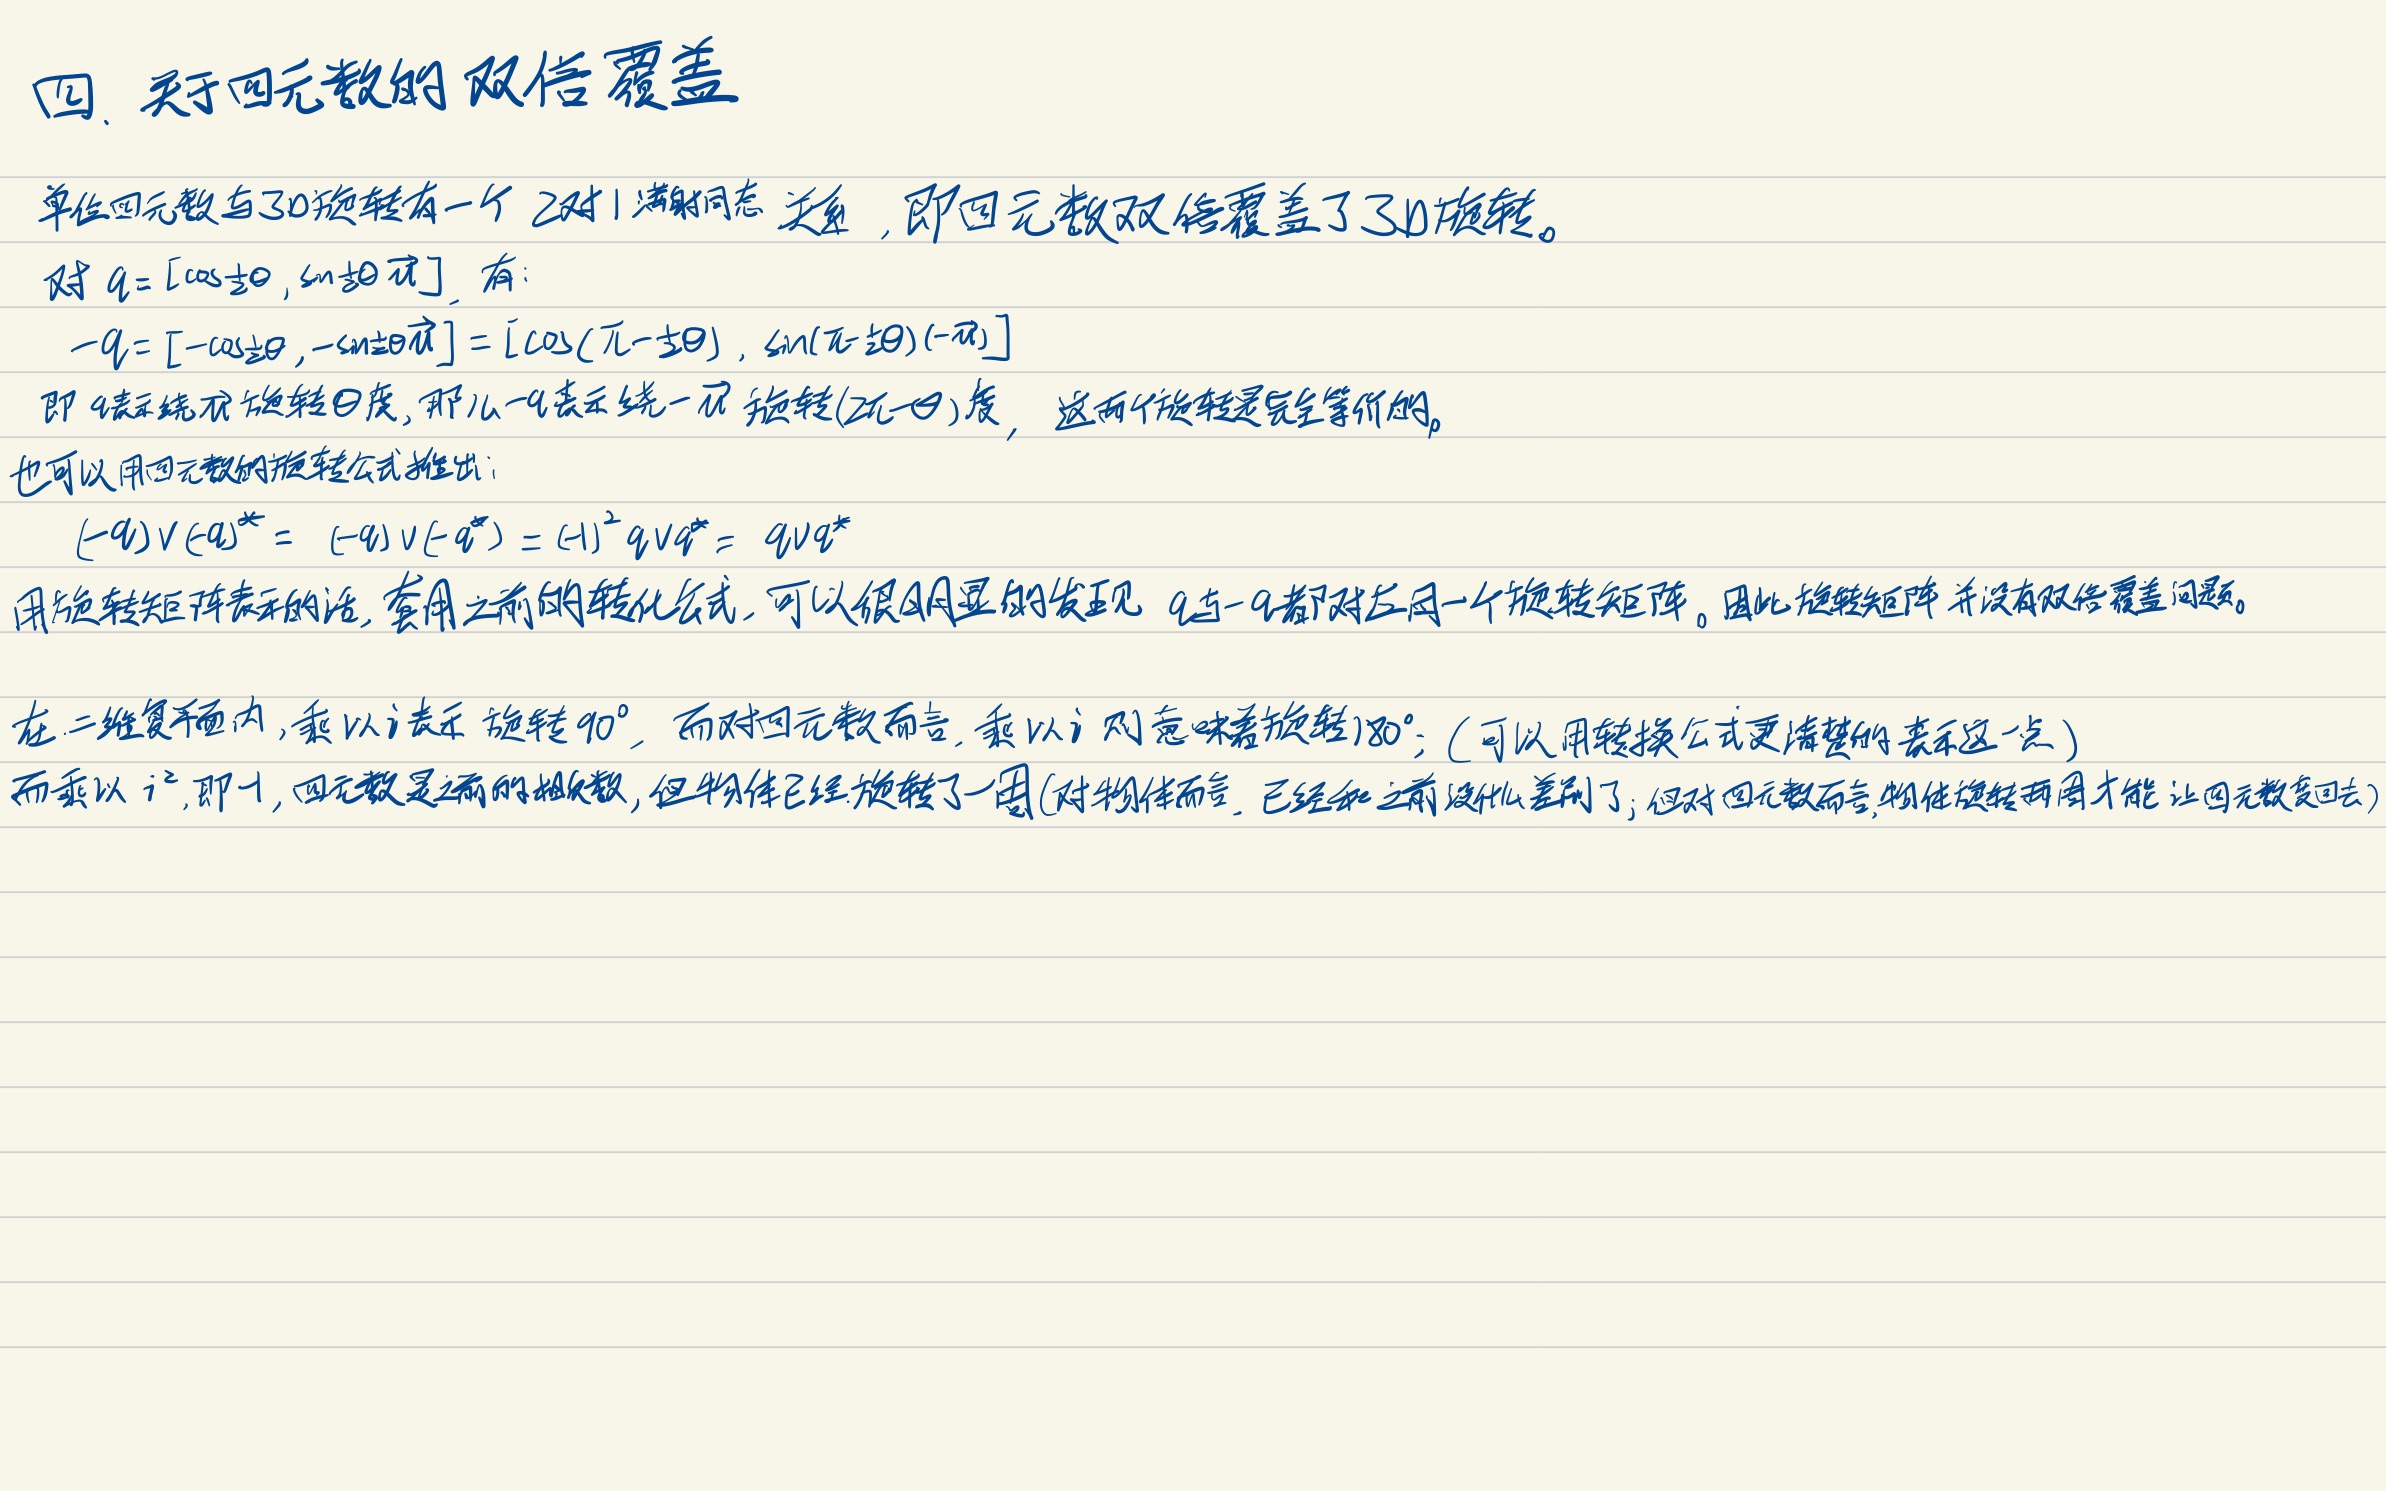 四、关于四元数的双倍覆盖
单位四元数与3D旋转有一个2对1满射同态关系,即四元数双倍覆盖了3D旋转。
对 q=[cos½θ, sin½θ u⃗],有:
-q=[-cos½θ, -sin½θu⃗]=[cos(π-½θ), sin(π-½θ)(-u⃗)]
即q表示绕u⃗旋转θ度,那么-q表示绕-u⃗旋转(2π-θ)度,这两个旋转是完全等价的。
也可以用四元数的旋转公式推出:
(-q)v(-q)* = (-q)v(-q*) = (-1)²qvq* = qvq*
用旋转矩阵表示的话,套用之前的转化公式,可以很明显的发现 q与-q都对应同一个旋转矩阵。因此旋转矩阵并没有双倍覆盖问题。
在二维复平面内,乘以i表示旋转90°,而对四元数而言,乘以i则意味着旋转180°;(可以用转换公式更清楚的表示这一点)
而乘以i²,即-1,四元数是之前的相反数,但物体已经旋转了一周(对物体而言,已经和之前没什么差别了;但对四元数而言,物体旋转两周才能让四元数变回去)